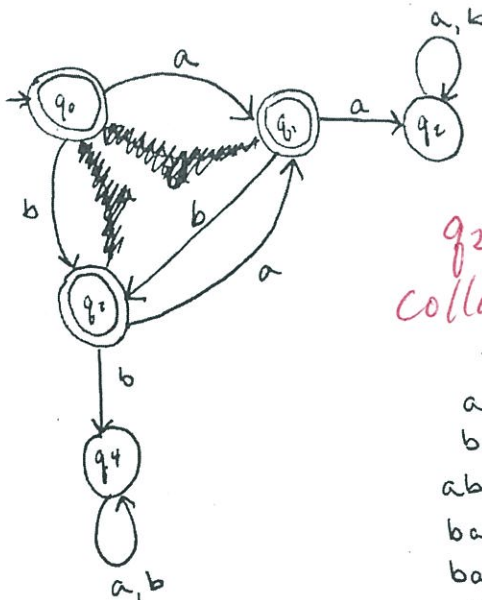 a
a, b
q0
q1
a
q2
b
b
a
q3
b
q4
a, b
q2
a
b
ab
ba
ba